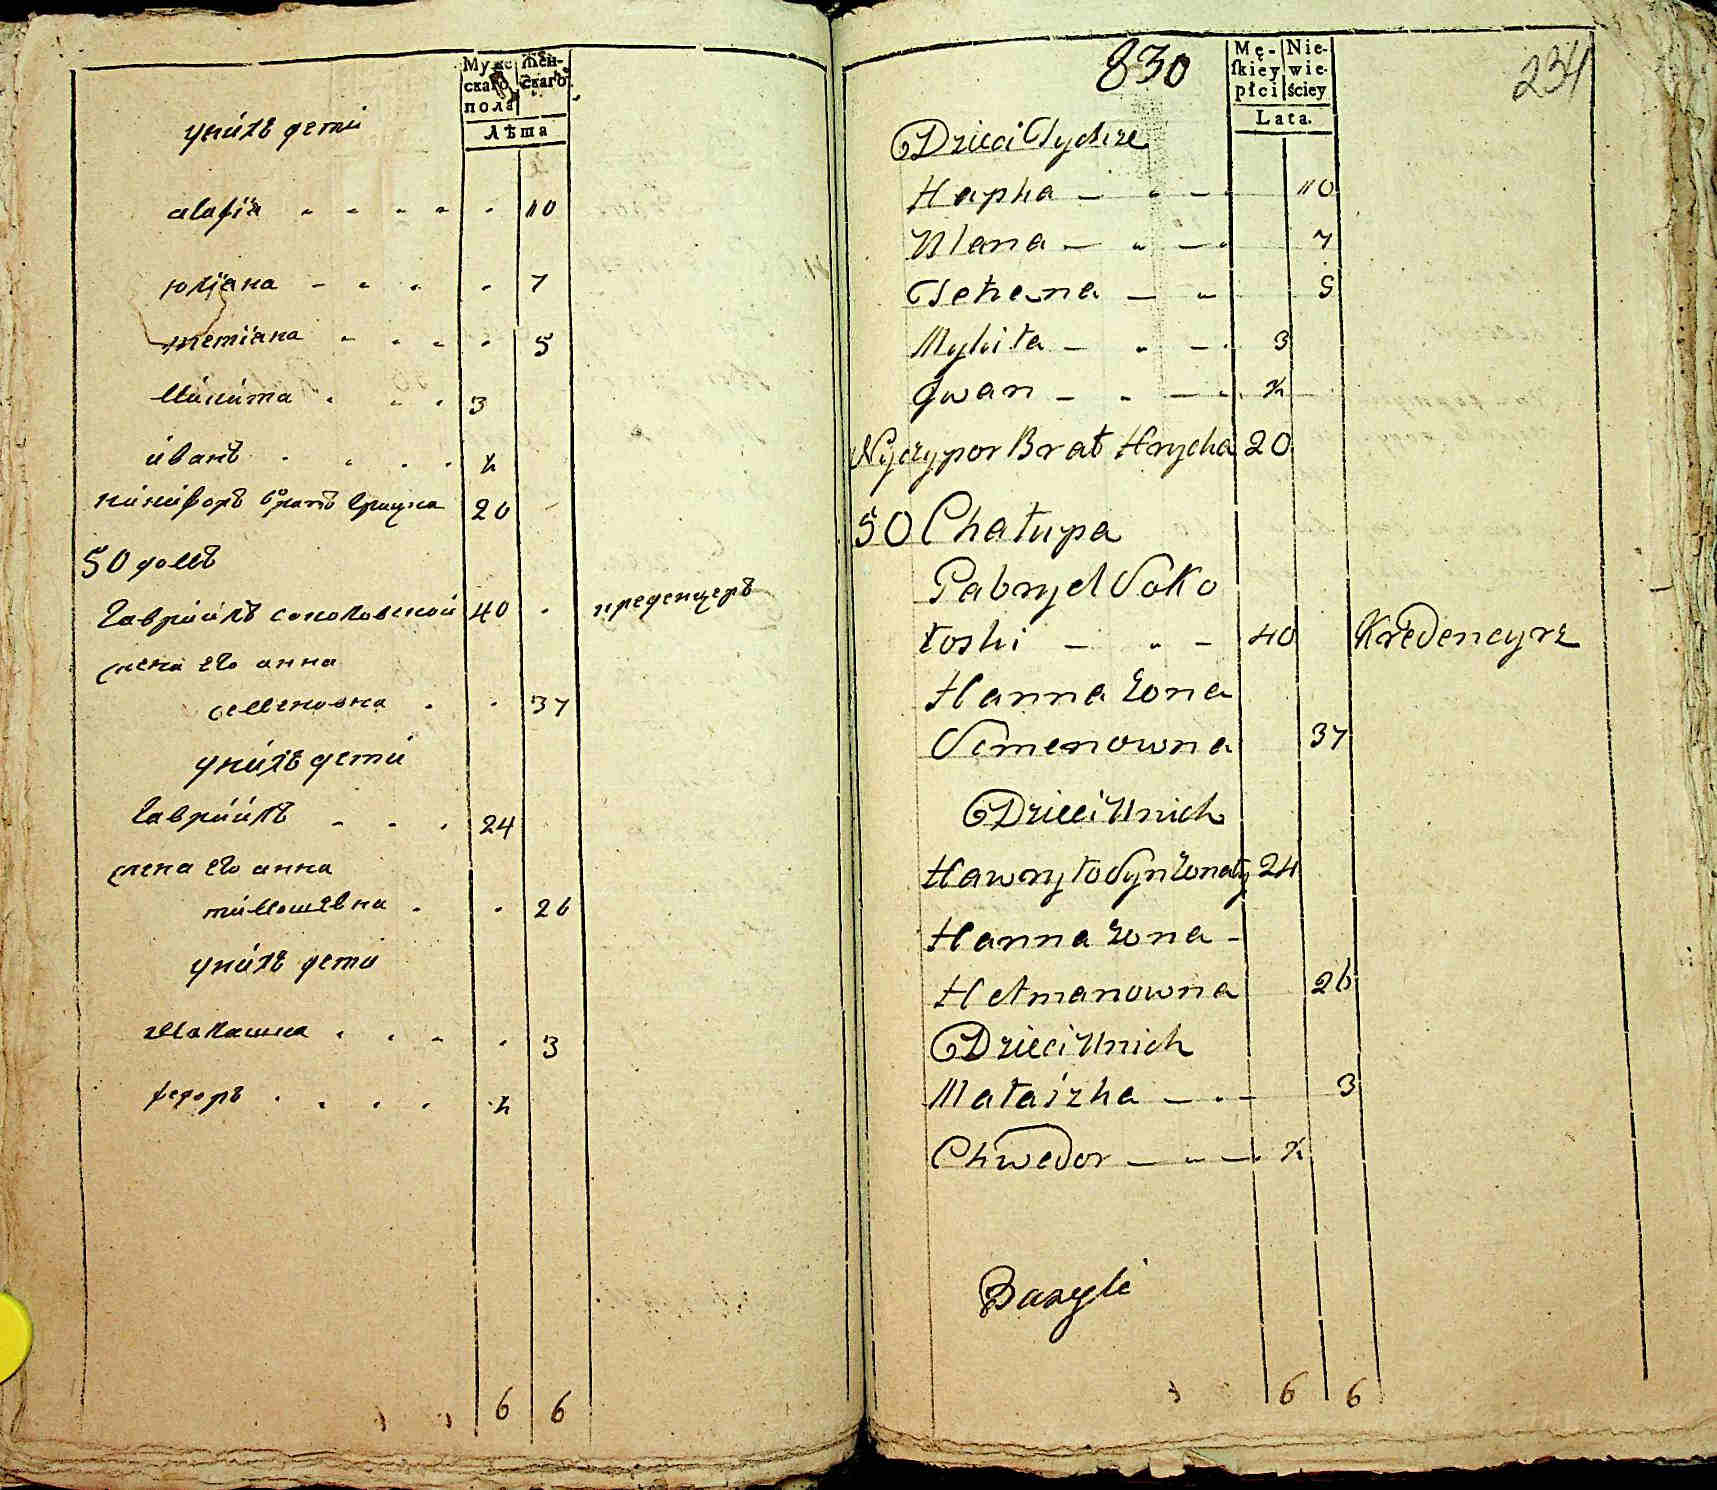 Муже
скаго
пола
Жен-
скаго
Лѣта
унихъ дети
агафiя 10
юлiана 7
тетiана 5
Микита 3
иванъ ½
никифоръ братъ Грицка 20
50 домъ
Гаврiилъ соколовский 40 креденцеръ
жена его анна
семеновна 37
унихъ дети
Гаврiилъ 24
жена его анна
тимошевна 26
унихъ дети
Малашка 3
федоръ ½
6 6
830
234
Mę-
skiey
płci
Nie-
wie-
ściey
Lata.
Dzieci Tychże
Hapka 10
Ulana 7
Tetiana 5
Mykita 3
Jwan ½
Nyczypor Brat Hrycka 20
50 Chałupa
Gabryel Soko
łoski 40 Kredencyrz
Hanna żona
Semenowna 37
Dzieci Unich
Hawryło Syn żonaty 24
Hanna żona
Hetmanowna 26
Dzieci Unich
Małaszka 3
Chwedor ½
Bazyli
6 6